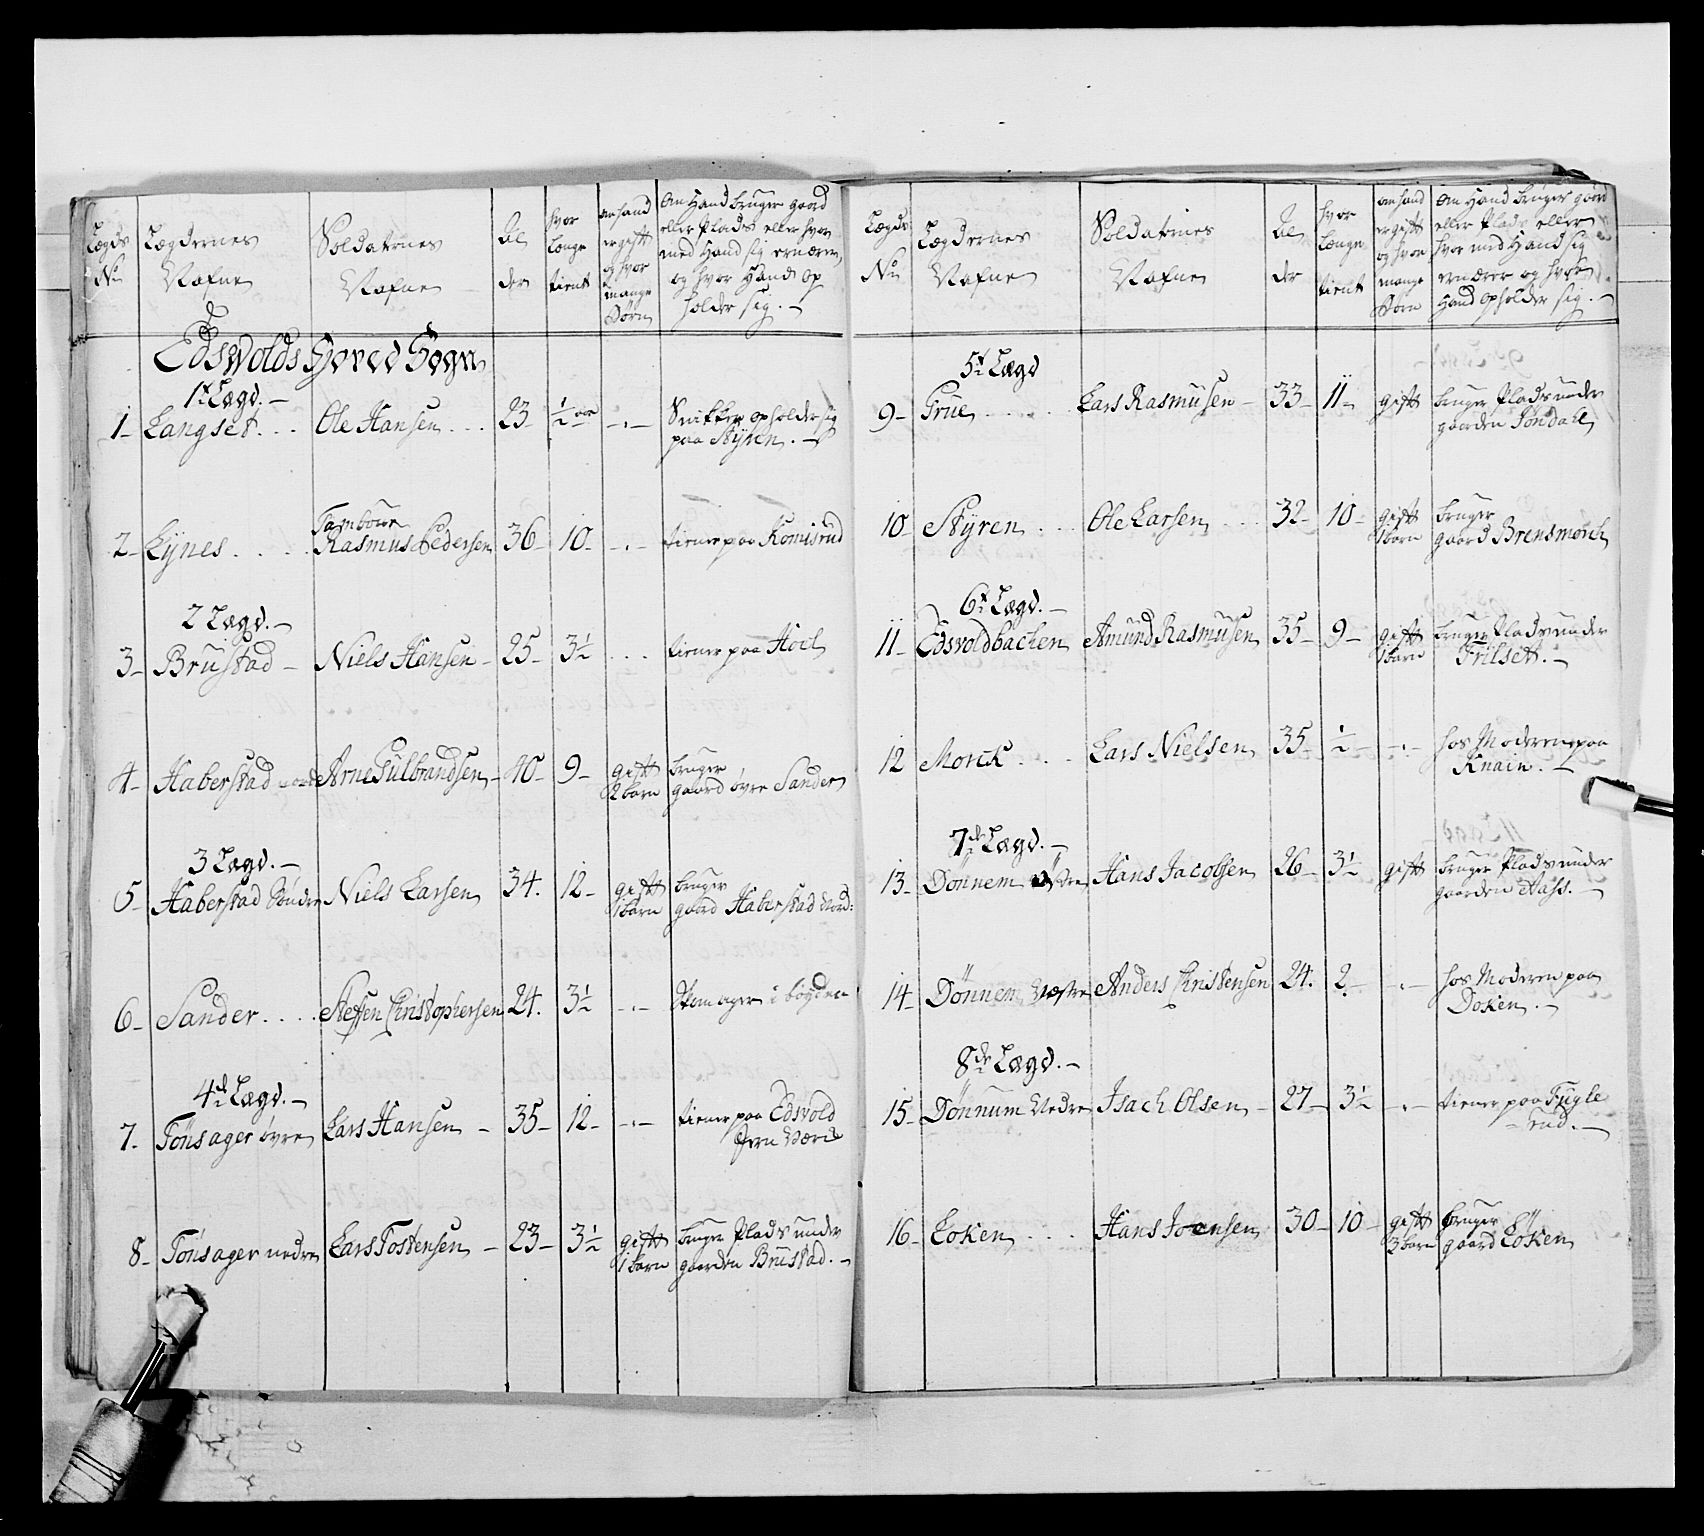 Lægds
No
Lægdernes
Nafne
Soldaternes
Nafne
Al
der
hvor
længe
tient
om hand
er gift
og hvor
mange
Børn
Om Hand bruger gaard
eller Plads eller hvor
med Hand sig ernærer,
og hvor Hand op
holder sig. -
Edswolds Hoved Sogn
1te Lægd. -
1- Langset . . . Ole Hansen . . . 23 ½ aar -.- Snikker opholder sig
paa Styren. -
Tambour
2- Lynes . . . . Rasmus Pedersen 36- 10- -.- tiener paa Romisrud
2 Lægd. -
3- Brustad - Niels Hansen - 25- 3½ . . . tiener paa Hoel
4- Haberstad nordr Arne Gulbrandsen - 40- 9- gift bruger
2 børn gaard øvre Sander
3 Lægd. -
5- Haberstad Søndre Niels Larsen 34. 12- gift bruger
1 barn gaard Haberstad Nord:
6- Sander . . . . Steffen Christophersen 24. 3½ -.- Skomager i bøyden
4de Lægd. -
7. Tønsager øvre Lars Hansen - 35- 12- -.- tiener paa Edsvold
Jern Værk
8- Tønsager nedre Lars Tostensen - 23- 3½ gift bruger Plads under
1 barn gaarden Brustad. -
Lægds
No
Lægdernes
Nafne
Soldaternes
Nafne
Al
der
hvor
længe
tient
om hand
er gift
og hvor
mange
Børn
Om Hand bruger gaard
eller Plads eller
hvor med Hand sig
ernærer og hvor
Hand opholder sig. -
5te Lægd
9- Grue . . . . Lars Rasmusen - 33- 11- gift bruger Plads under
gaarden Jøndahl
10 Styren . . Ole Larsen . . . 32- 10- gift bruger
1 barn gaard Brensmorck
6te Lægd. -
11- Edsvoldbachen Amund Rasmusen 35- 9- gift bruger Plads under
1 barn Trilset. -
12 Morck . . . . Lars Nielsen 35- ½ -.- hos Moderen paa
Knain. -
7de Lægd. -
13- Dønnem Østre Hans Jacobsen 26- 3½ gift bruger Plads under
gaarden Aass. -
14- Dønnem Vestre Anders Christensen 24. 2- -.- hos Moderen paa
Doken. -
8de Lægd. -
15- Dønnum Nedre Isach Olsen - 27- 3½ -.- tiener paa Fugle
- rud. -
16- Loken . . . . Hans Joensen 30- 10- gift bruger
3 børn gaard Loken